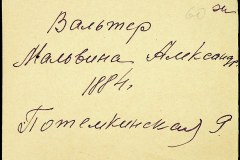 Вальтер
Мальвина Александр.
1884 г.
Потемкинская 9.